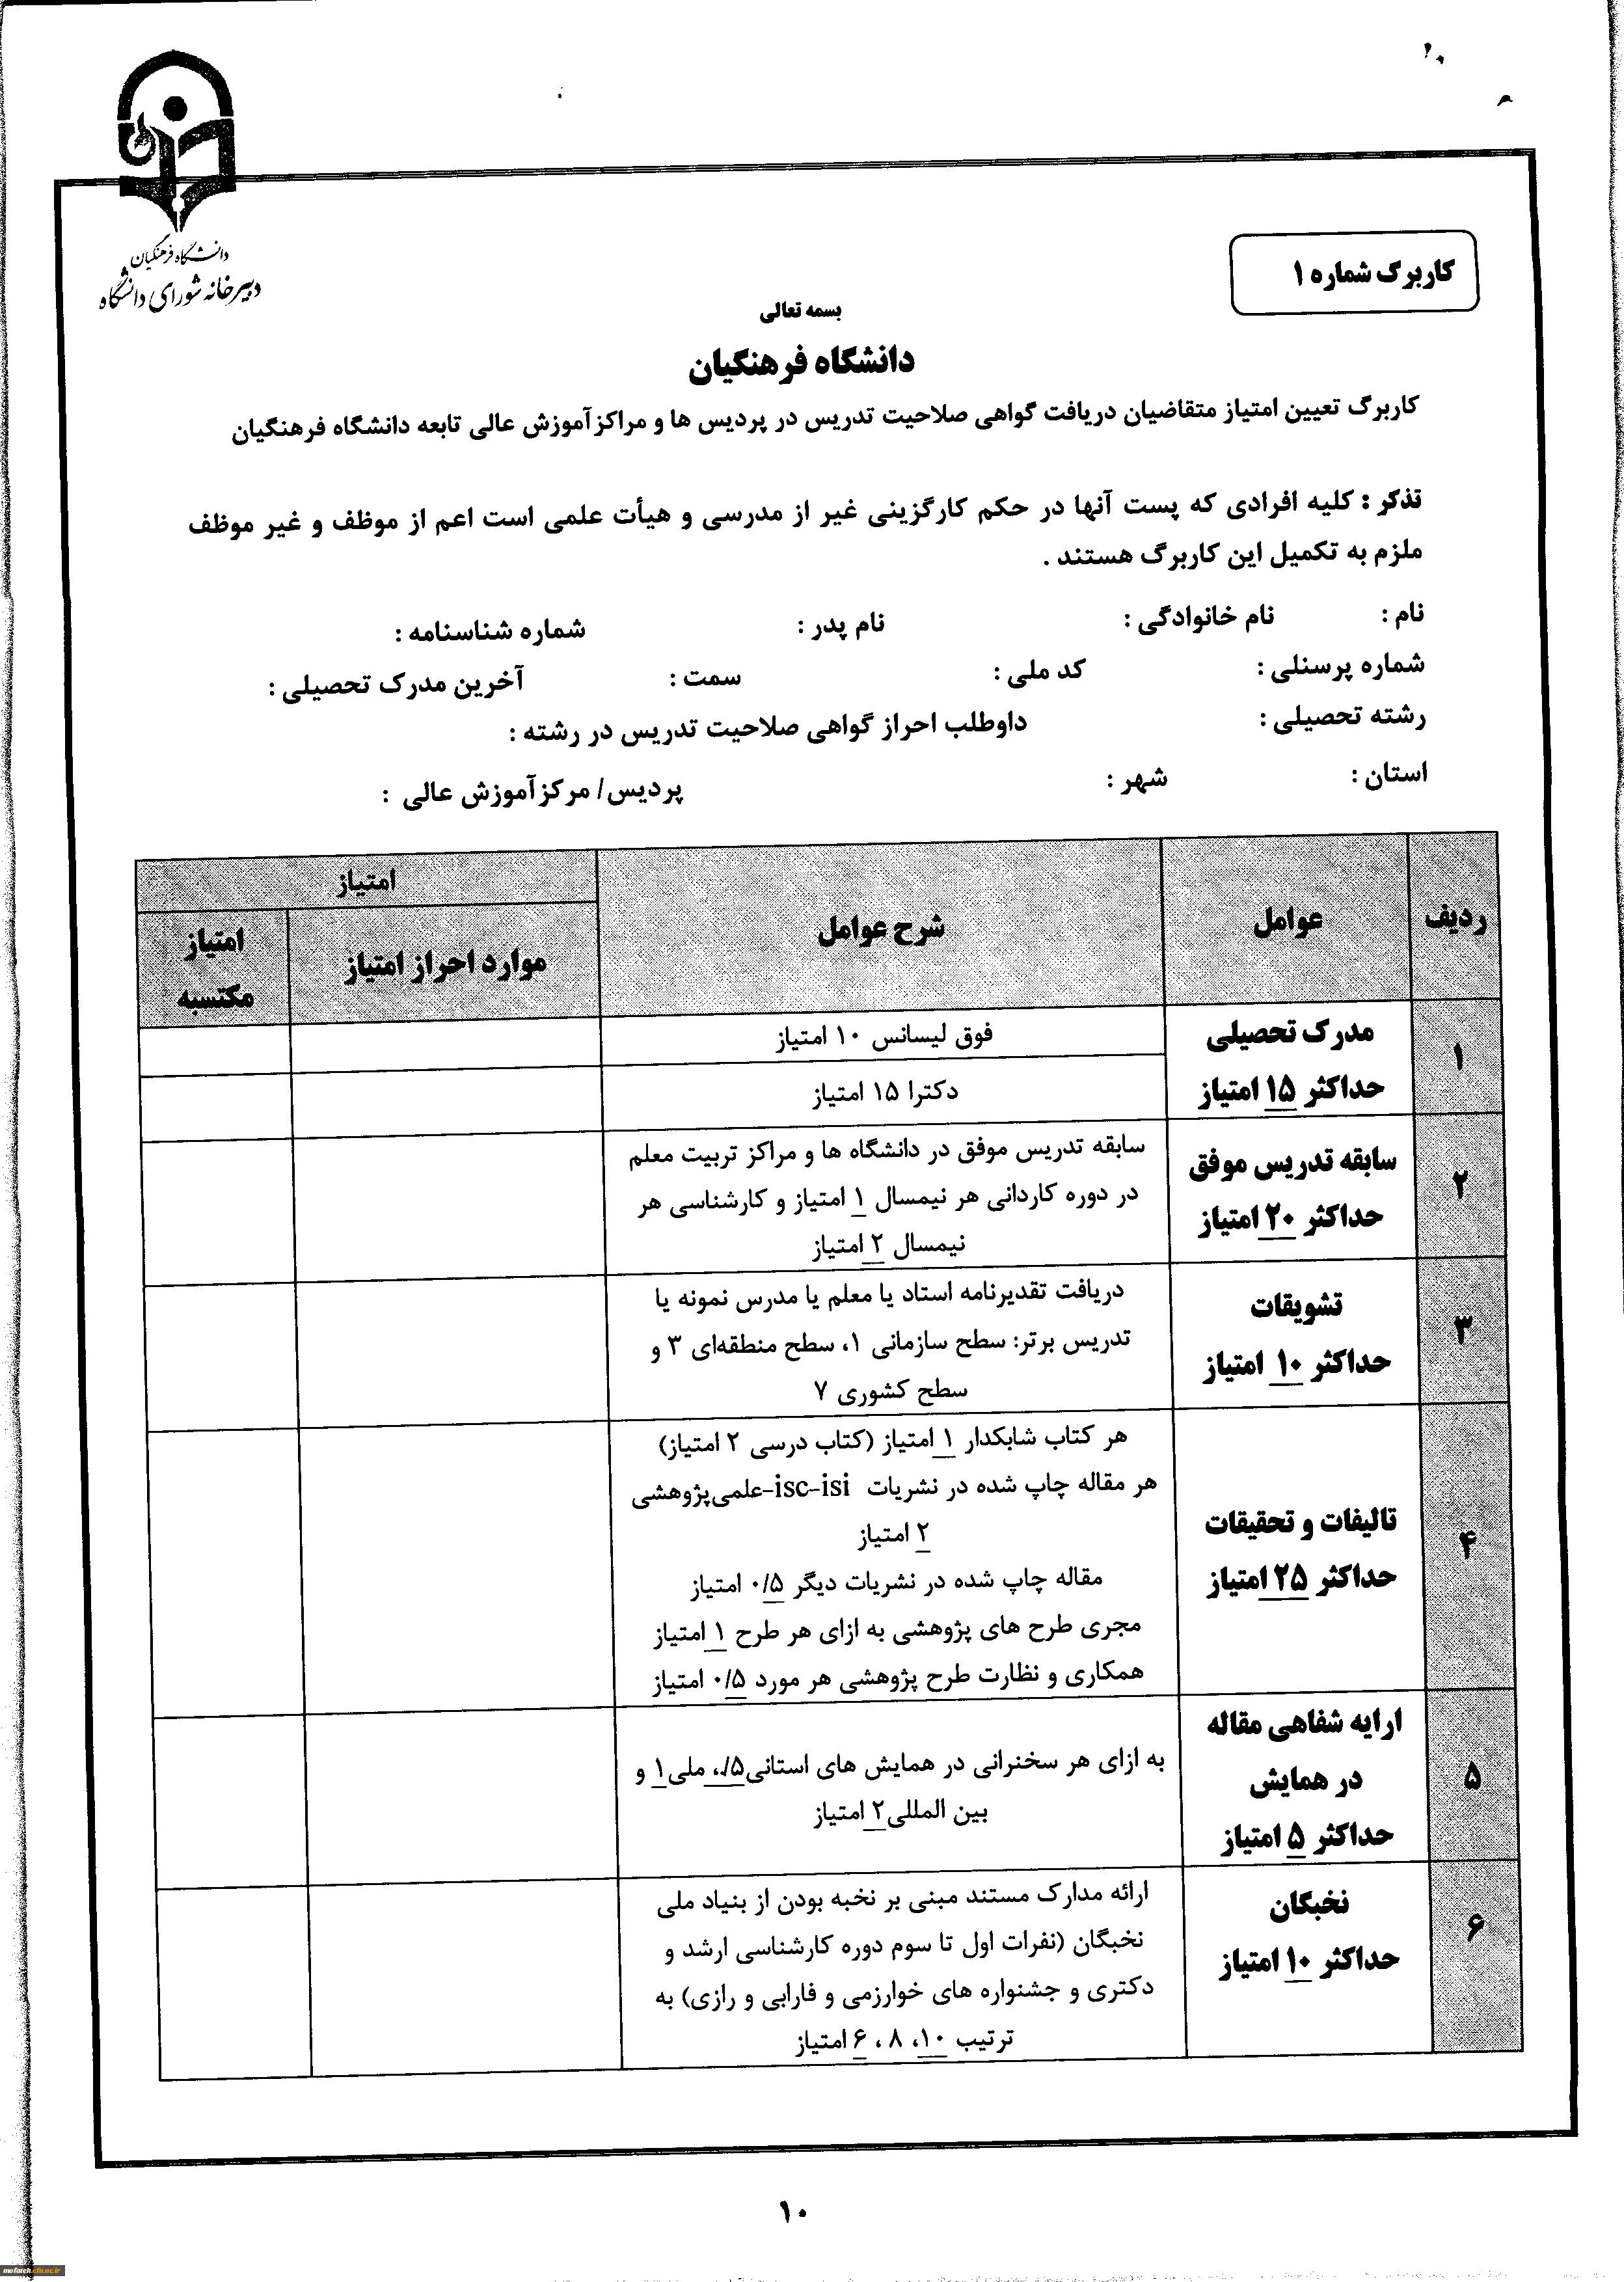 دانشگاه فرهنگیان
دبیرخانه شورای دانشگاه
کاربرگ شماره ۱
بسمه تعالی
دانشگاه فرهنگیان
کاربرگ تعیین امتیاز متقاضیان دریافت گواهی صلاحیت تدریس در پردیس ها و مراکز آموزش عالی تابعه دانشگاه فرهنگیان
تذکر : کلیه افرادی که پست آنها در حکم کارگزینی غیر از مدرسی و هیأت علمی است اعم از موظف و غیر موظف
ملزم به تکمیل این کاربرگ هستند .
نام : نام خانوادگی : نام پدر : شماره شناسنامه :
شماره پرسنلی : کد ملی : سمت : آخرین مدرک تحصیلی :
رشته تحصیلی : داوطلب احراز گواهی صلاحیت تدریس در رشته :
استان : شهر : پردیس/ مرکز آموزش عالی :
ردیف عوامل شرح عوامل امتیاز
موارد احراز امتیاز
امتیاز
مکتسبه
۱
مدرک تحصیلی
حداکثر ۱۵ امتیاز
فوق لیسانس ۱۰ امتیاز
دکترا ۱۵ امتیاز
۲
سابقه تدریس موفق
حداکثر ۲۰ امتیاز
سابقه تدریس موفق در دانشگاه ها و مراکز تربیت معلم
در دوره کاردانی هر نیمسال ۱ امتیاز و کارشناسی هر
نیمسال ۲ امتیاز
۳
تشویقات
حداکثر ۱۰ امتیاز
دریافت تقدیرنامه استاد یا معلم یا مدرس نمونه یا
تدریس برتر: سطح سازمانی ۱، سطح منطقه‌ای ۳ و
سطح کشوری ۷
۴
تالیفات و تحقیقات
حداکثر ۲۵ امتیاز
هر کتاب شابکدار ۱ امتیاز (کتاب درسی ۲ امتیاز)
هر مقاله چاپ شده در نشریات isc-isi-علمی‌پژوهشی
۲ امتیاز
مقاله چاپ شده در نشریات دیگر ۰/۵ امتیاز
مجری طرح های پژوهشی به ازای هر طرح ۱ امتیاز
همکاری و نظارت طرح پژوهشی هر مورد ۰/۵ امتیاز
۵
ارایه شفاهی مقاله
در همایش
حداکثر ۵ امتیاز
به ازای هر سخنرانی در همایش های استانی۵/.، ملی۱ و
بین المللی۲ امتیاز
۶
نخبگان
حداکثر ۱۰ امتیاز
ارائه مدارک مستند مبنی بر نخبه بودن از بنیاد ملی
نخبگان (نفرات اول تا سوم دوره کارشناسی ارشد و
دکتری و جشنواره های خوارزمی و فارابی و رازی) به
ترتیب ۱۰، ۸ ، ۶ امتیاز
۱۰
mofateh.cfu.ac.ir